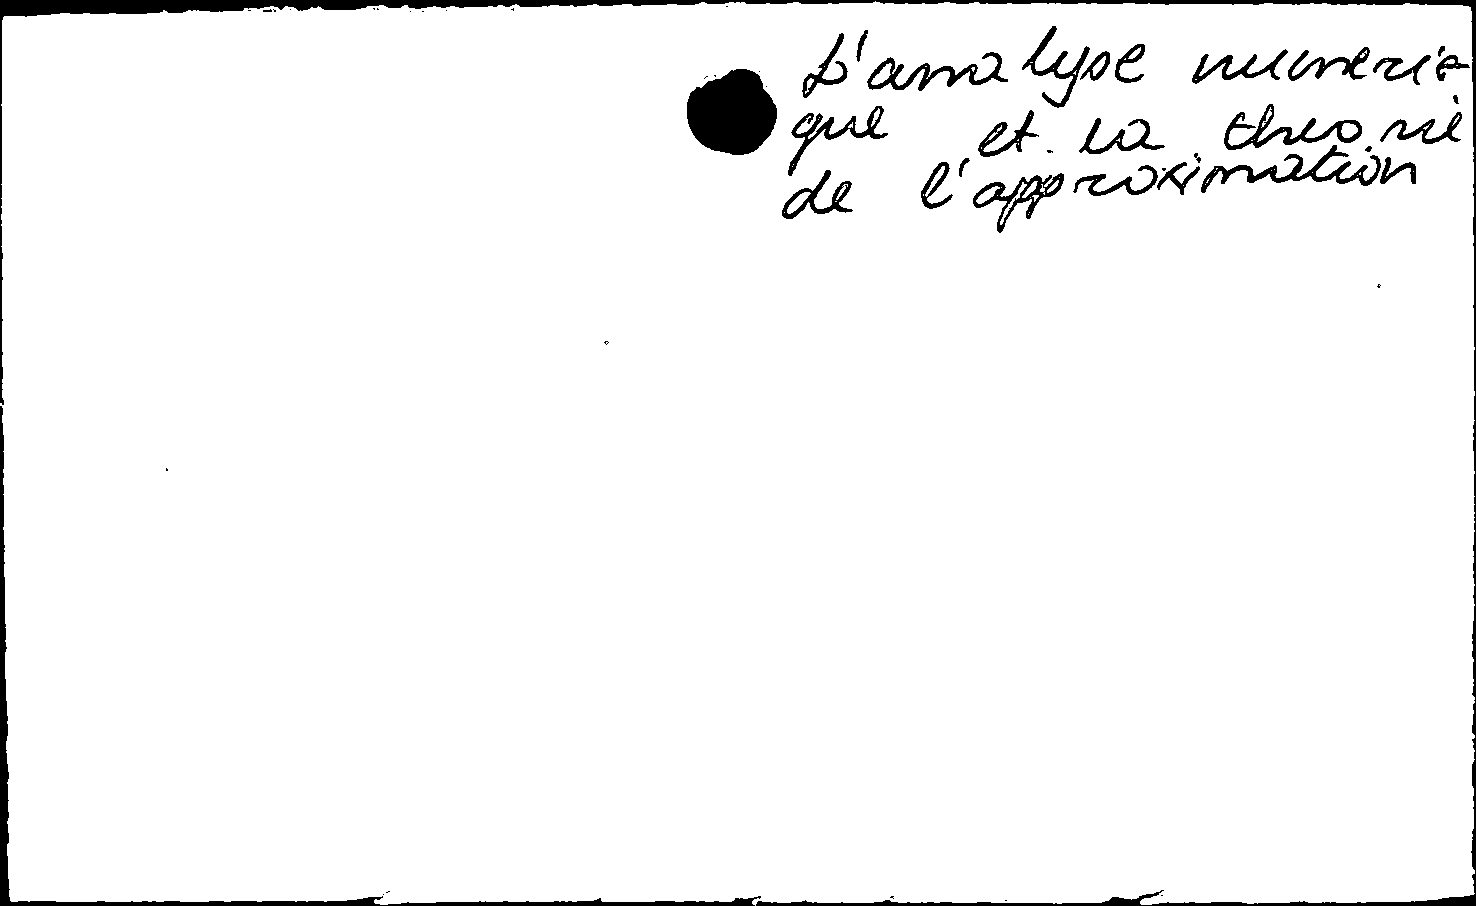 L'analyse numeri-
que et la theorie
de l'approximation